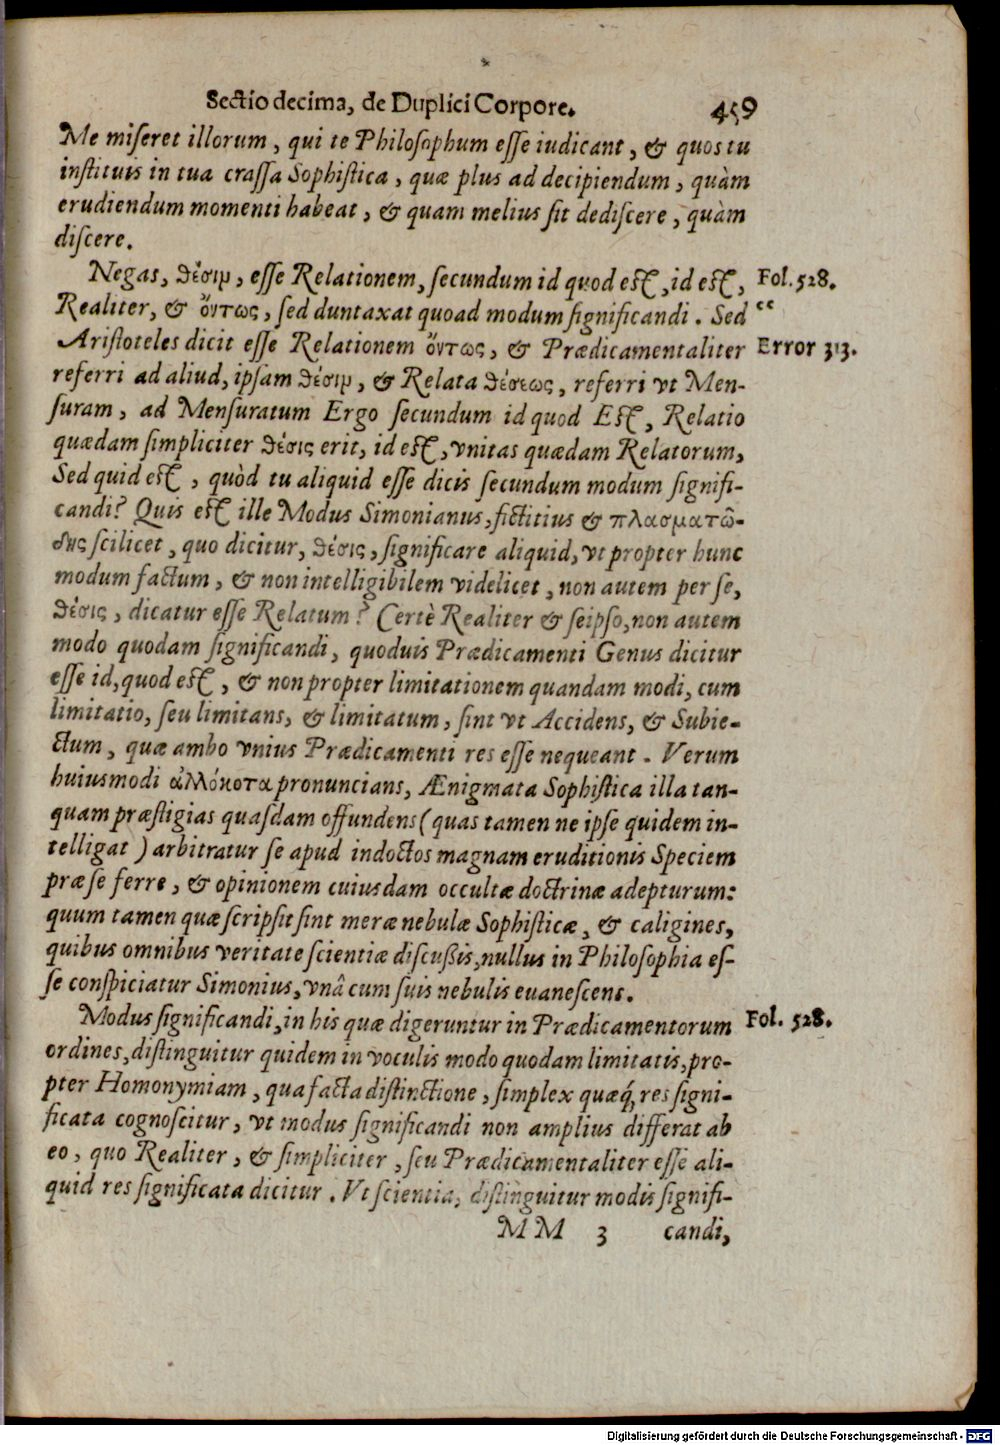 Sectio decima, de Duplici Corpore. 459
Me miseret illorum, qui te Philosophum esse iudicant, & quos tu
instituis in tua crassa Sophistica, quæ plus ad decipiendum, quàm
erudiendum momenti habeat, & quam melius sit dediscere, quàm
discere.
Negas, θέσιν, esse Relationem, secundum id quod est, id est, Fol. 528.
Realiter, & ὄντως, sed duntaxat quoad modum significandi. Sed “
Aristoteles dicit esse Relationem ὄντως, & Prædicamentaliter Error 313.
referri ad aliud, ipsam θέσιν, & Relata θέσεως, referri vt Men-
suram, ad Mensuratum Ergo secundum id quod Est, Relatio
quædam simpliciter θέσις erit, id est, vnitas quædam Relatorum,
Sed quid est, quòd tu aliquid esse dicis secundum modum signifi-
candi? Quis est ille Modus Simonianus, fictitius & πλασματώ-
δης scilicet, quo dicitur, θέσις, significare aliquid, vt propter hunc
modum factum, & non intelligibilem videlicet, non autem per se,
θέσις, dicatur esse Relatum? Certè Realiter & seipso, non autem
modo quodam significandi, quoduis Prædicamenti Genus dicitur
esse id, quod est, & non propter limitationem quandam modi, cum
limitatio, seu limitans, & limitatum, sint vt Accidens, & Subie-
ctum, quæ ambo vnius Prædicamenti res esse nequeant. Verum
huiusmodi ἀλλόκοτα pronuncians, Ænigmata Sophistica illa tan-
quam præstigias quasdam offundens (quas tamen ne ipse quidem in-
telligat) arbitratur se apud indoctos magnam eruditionis Speciem
præ se ferre, & opinionem cuiusdam occultæ doctrinæ adepturum:
quum tamen quæ scripsit sint meræ nebulæ Sophisticæ, & caligines,
quibus omnibus veritate scientiæ discussis, nullus in Philosophia es-
se conspiciatur Simonius, vnâ cum suis nebulis euanescens.
Modus significandi, in his quæ digeruntur in Prædicamentorum Fol. 528.
ordines, distinguitur quidem in voculis modo quodam limitatis, pro-
pter Homonymiam, qua facta distinctione, simplex quæq́, res signi-
ficata cognoscitur, vt modus significandi non amplius differat ab
eo, quo Realiter, & simpliciter, seu Prædicamentaliter esse ali-
quid res significata dicitur. Vt scientia, distinguitur modis signifi-
MM 3 candi,
Digitalisierung gefördert durch die Deutsche Forschungsgemeinschaft - DFG